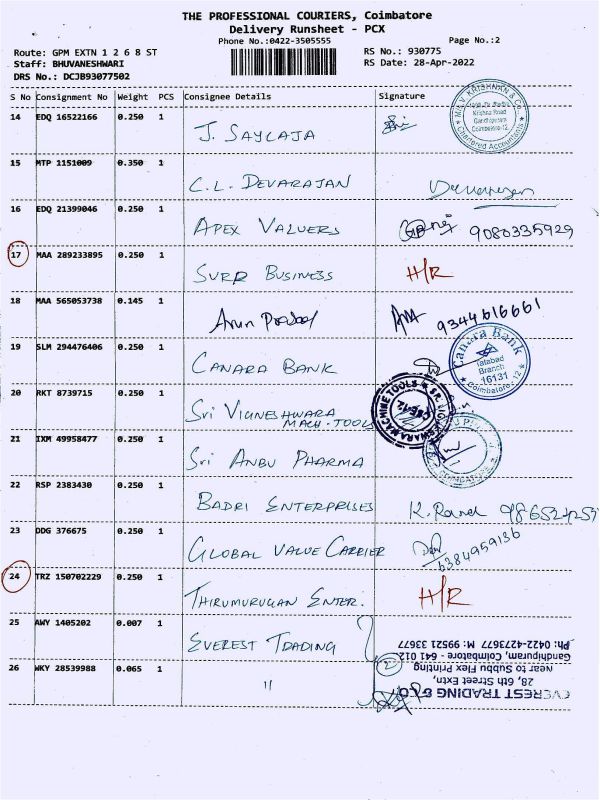 THE PROFESSIONAL COURIERS, Coimbatore
Delivery Runsheet - PCX
Phone No.:0422-3505555
Page No.:2
Route: GPM EXTN 1 2 6 8 ST
RS No.: 930775
Staff: BHUVANESHWARI
RS Date: 28-Apr-2022
DRS No.: DCJB93077502
S No Consignment No Weight PCS Consignee Details Signature
14 EDQ 16522166 0.250 1 J. SAYLAJA
M/s. V. KRISHNAN & Co.
Krishna Road
Gandhipuram
Coimbatore-12.
Chartered Accountants
15 MTP 1151009 0.350 1 C.L. DEVARAJAN
16 EDQ 21399046 0.250 1 APEX VALUERS 9080335929
17 MAA 289233895 0.250 1 SURR BUSINESS H/R
18 MAA 565053738 0.145 1 Arun Prasad 9344616661
19 SLM 294476406 0.250 1 CANARA BANK
Canara Bank
Tatabad
Branch
16131
Coimbatore-12
20 RKT 8739715 0.250 1 Sri VIGNESHWARA
MACH. TOOLS
SRI VIGNESHWARA MACHINE TOOLS
CBE-12
21 IXM 49958477 0.250 1 Sri ANBU PHARMA
COIMBATORE
22 RSP 2383430 0.250 1 BADRI ENTERPRISES
23 DDG 376675 0.250 1 GLOBAL VALUE CARRIER 6384959136
24 TRZ 150702229 0.250 1 THIRUMURUGAN ENTER. H/R
25 AWY 1405202 0.007 1 EVEREST TRADING
26 WKY 28539988 0.065 1 11
EVEREST TRADING & CO.
28, 6th Street Extn,
Near to Subbu Flex Printing
Gandhipuram, Coimbatore - 641 012
Ph: 0422-4273677 M: 99521 33677